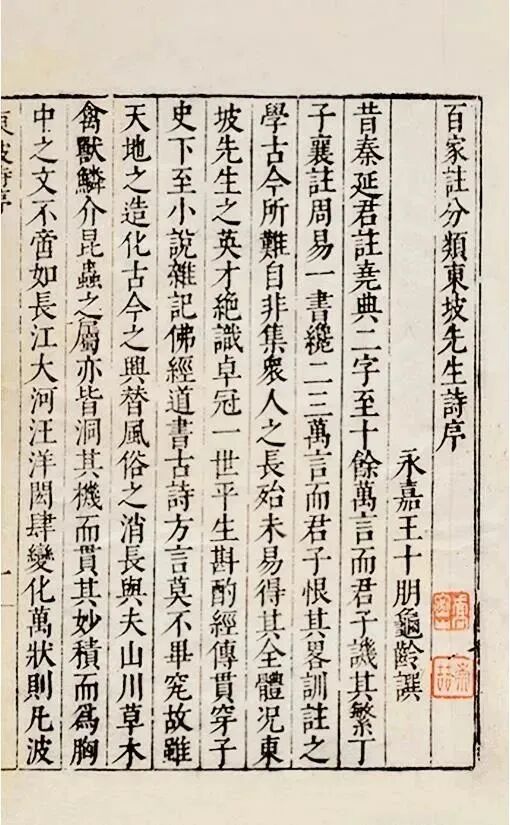 百家註分類東坡先生詩序
永嘉王十朋龜齡譔
昔秦延君註堯典二字至十餘萬言而君子譏其繁丁
子襄註周易一書纔二三萬言而君子恨其畧訓註之
學古今所難自非集衆人之長始未易得其全體況東
坡先生之英才絶識卓冠一世平生斟酌經傳貫穿子
史下至小說雜記佛經道書古詩方言莫不畢究故雖
天地之造化古今之興替風俗之消長與夫山川草木
禽獸鱗介昆蟲之屬亦皆洞其機而貫其妙積而爲胸
中之文不啻如長江大河汪洋閎肆變化萬狀則凡波